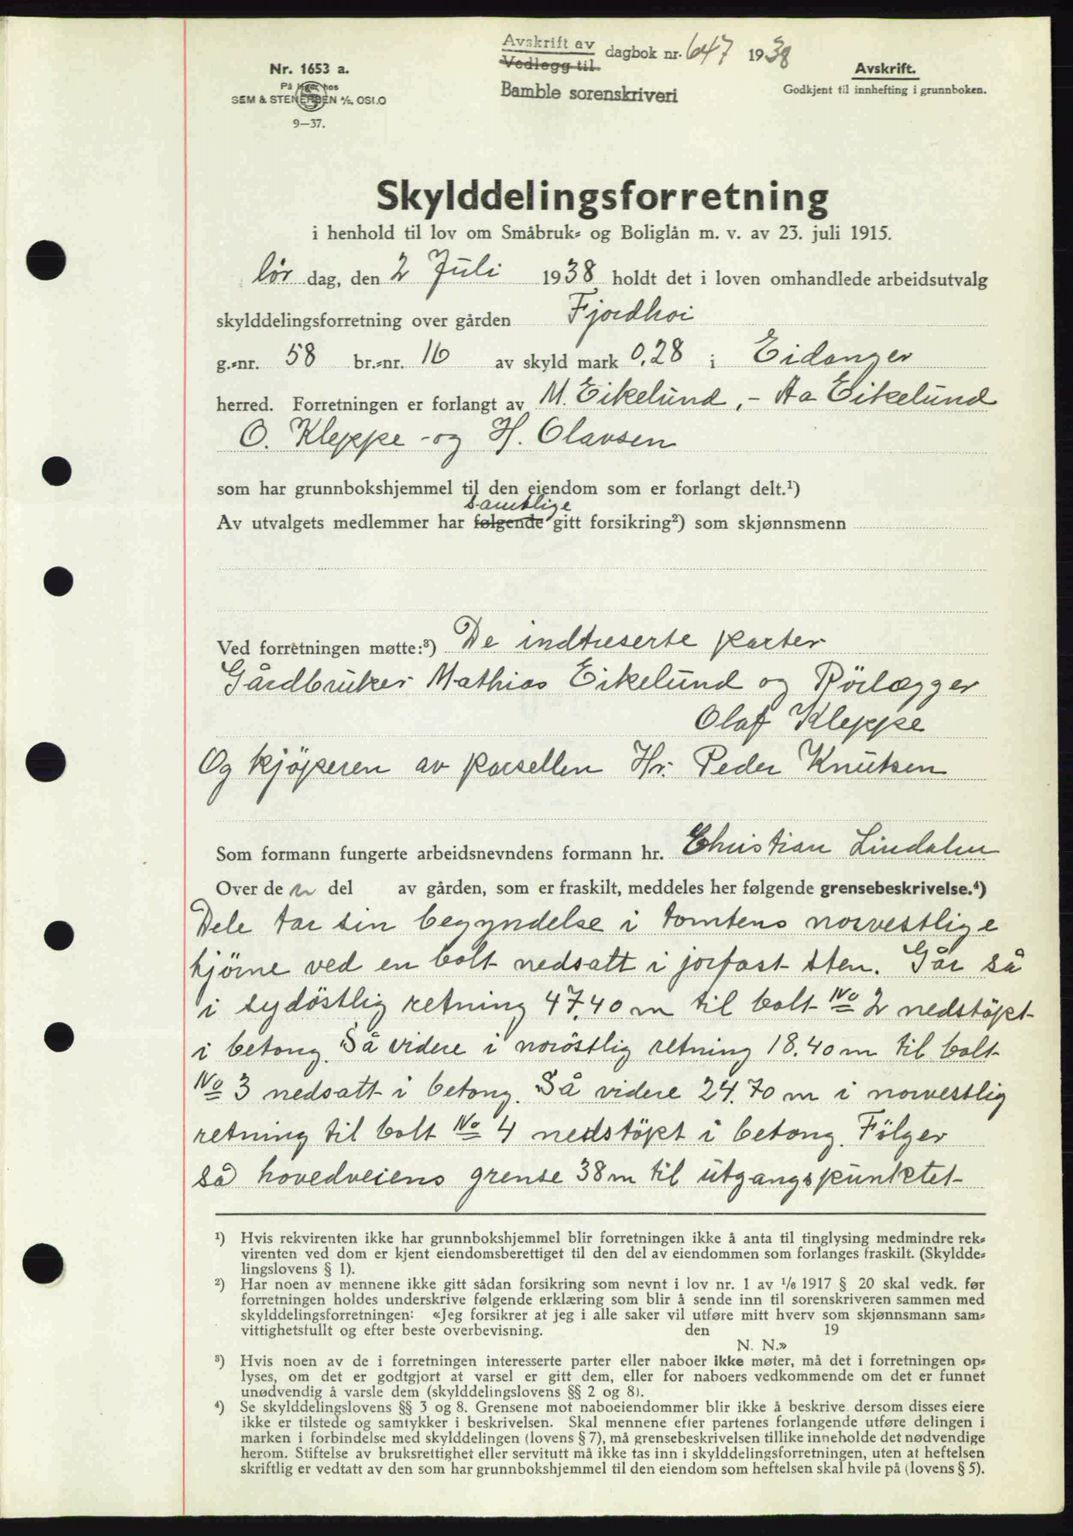 Avskrift av
Vedlegg til dagbok nr. 647 1938
Bamble sorenskriveri
Nr. 1653 a.
På lager hos
SEM & STENERSEN A/S, OSLO
9—37.
Avskrift.
Godkjent til innhefting i grunnboken.
Skylddelingsforretning
i henhold til lov om Småbruk- og Boliglån m. v. av 23. juli 1915.
lør dag, den 2 Juli 1938 holdt det i loven omhandlede arbeidsutvalg
skylddelingsforretning over gården Fjordhoi
g.-nr. 58 br.-nr. 16 av skyld mark 0,28 i Eidanger
herred. Forretningen er forlangt av M. Eikelund, - Aa Eikelund
O. Kleppe - og H. Olavsen
som har grunnbokshjemmel til den eiendom som er forlangt delt.¹)
samtlige
Av utvalgets medlemmer har følgende gitt forsikring²) som skjønnsmenn
Ved forretningen møtte:³) De indtreserte parter
Gårdbruker Mathias Eikelund og Rörlægger
Olaf Kleppe
Og kjöperen av parsellen Hr. Peder Knutsen
Som formann fungerte arbeidsnevndens formann hr. Christian Lindalen
Over de n del av gården, som er fraskilt, meddeles her følgende grensebeskrivelse.⁴)
Dele tar sin begyndelse i tomtens norvestlige
hjörne ved en bolt nedsatt i jorfast sten. Går så
i sydöstlig retning 47,40 m til bolt No 2 nedstöpt
i betong. Så videre i noröstlig retning 18.40 m til bolt
No 3 nedsatt i betong. Så videre 24.70 m i norvestlig
retning til bolt No 4 nedstöpt i betong. Fölger
så hovedveiens grense 38 m til utgangspunktet
¹) Hvis rekvirenten ikke har grunnbokshjemmel blir forretningen ikke å anta til tinglysing medmindre rek-
virenten ved dom er kjent eiendomsberettiget til den del av eiendommen som forlanges fraskilt. (Skyldde-
lingslovens § 1).
²) Har noen av mennene ikke gitt sådan forsikring som nevnt i lov nr. 1 av 1/6 1917 § 20 skal vedk. før
forretningen holdes underskrive følgende erklæring som blir å sende inn til sorenskriveren sammen med
skylddelingsforretningen: «Jeg forsikrer at jeg i alle saker vil utføre mitt hverv som skjønnsmann sam-
vittighetsfullt og efter beste overbevisning. den 19
N. N.»
³) Hvis noen av de i forretningen interesserte parter eller naboer ikke møter, må det i forretningen op-
lyses, om det er godtgjort at varsel er gitt dem, eller for naboers vedkommende om det er funnet
unødvendig å varsle dem (skylddelingslovens §§ 2 og 8).
⁴) Se skylddelingslovens §§ 3 og 8. Grensene mot naboeiendommer blir ikke å beskrive dersom disses eiere
ikke er tilstede og samtykker i beskrivelsen. Skal mennene efter partenes forlangende utføre delingen i
marken i forbindelse med skylddelingen (lovens § 7), må grensebeskrivelsen tillike inneholde det nødvendige
herom. Stiftelse av bruksrettighet eller servitutt må ikke tas inn i skylddelingsforretningen, uten at heftelsen
skriftlig er vedtatt av den som har grunnbokshjemmel til den eiendom som heftelsen skal hvile på (lovens § 5).